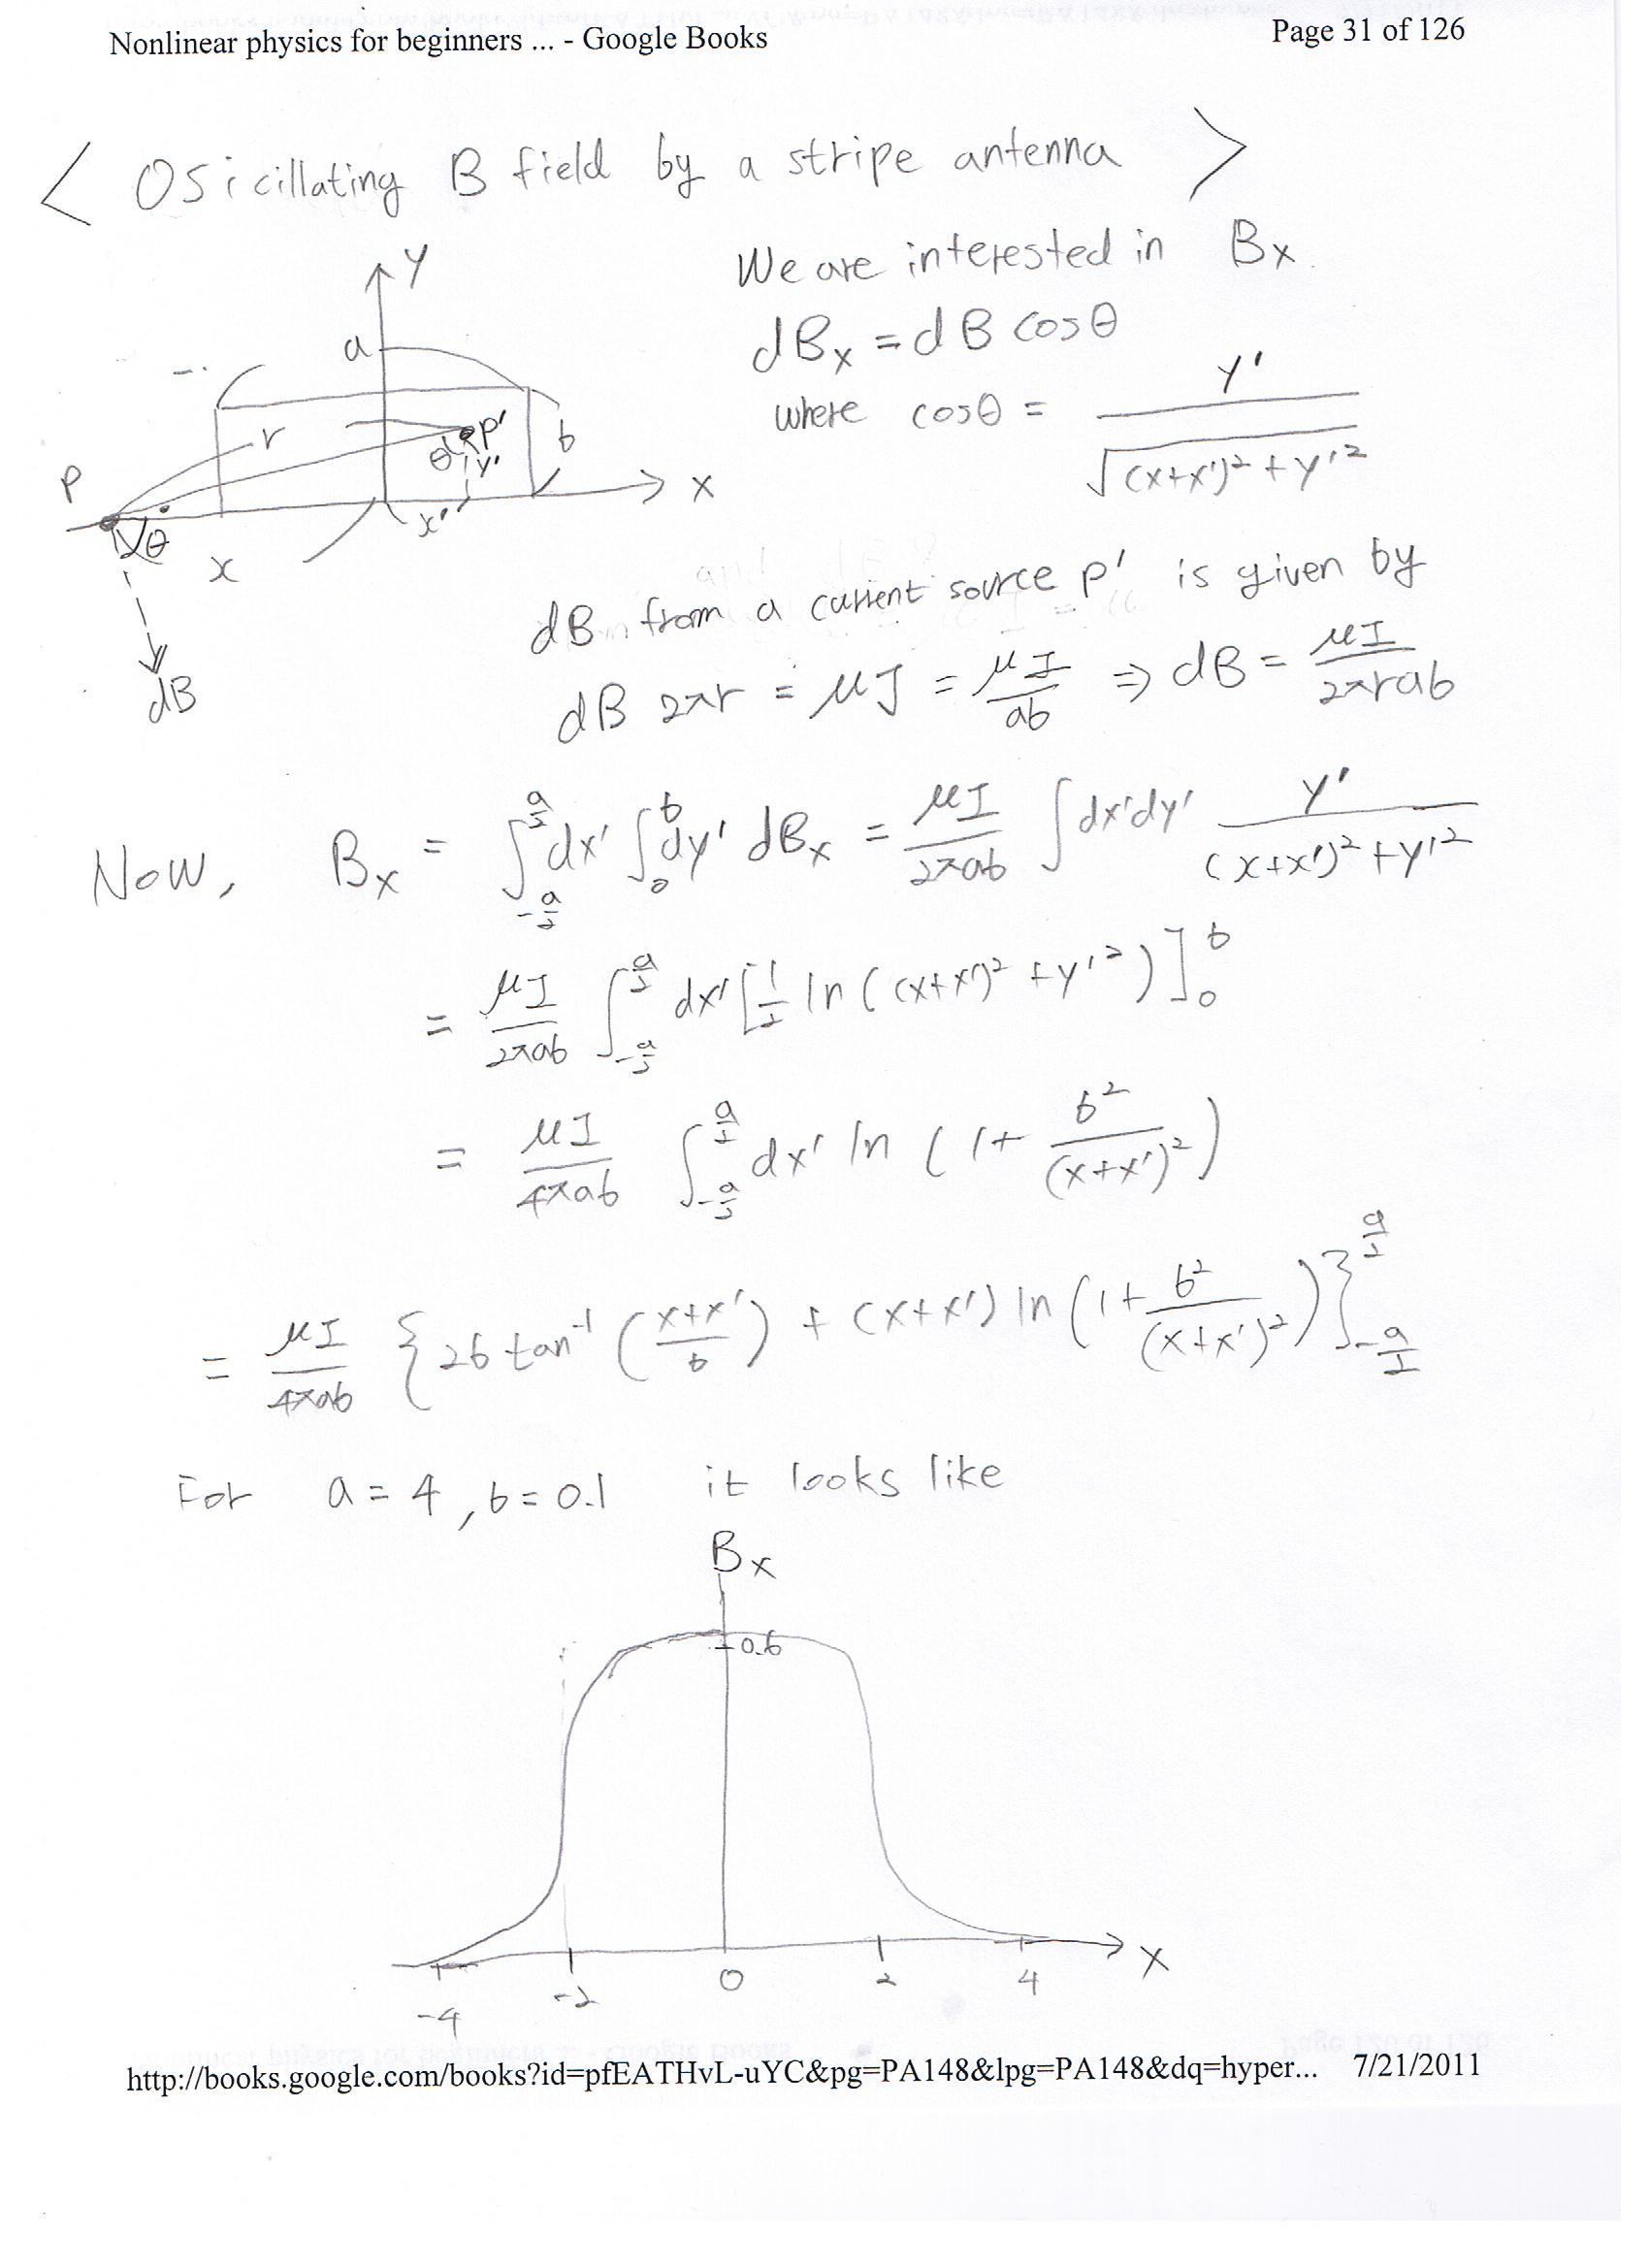 Nonlinear physics for beginners ... - Google Books Page 31 of 126
< OSicillating B field by a stripe antenna >
We are interested in Bx.
dBx = dB cosθ
where cosθ = y' / √((x+x')² + y'²)
Y
a
r
θ P'
b
y'
P
x
x'
θ
x
dB
dB from a current source p' is given by
dB 2πr = μJ = μI/ab ⇒ dB = μI/2πrab
Now, Bx = ∫_{-a/2}^{a/2} dx' ∫_0^b dy' dBx = μI/2πab ∫ dx'dy' y'/((x+x')² + y'²)
= μI/2πab ∫_{-a/2}^{a/2} dx' [1/2 ln((x+x')² + y'²)]_0^b
= μI/4πab ∫_{-a/2}^{a/2} dx' ln(1 + b²/(x+x')²)
= μI/4πab {2b tan⁻¹((x+x')/b) + (x+x') ln(1 + b²/(x+x')²)}_{-a/2}^{a/2}
For a = 4, b = 0.1 it looks like
Bx
0.6
-4 -2 0 2 4 X
http://books.google.com/books?id=pfEATHvL-uYC&pg=PA148&lpg=PA148&dq=hyper... 7/21/2011